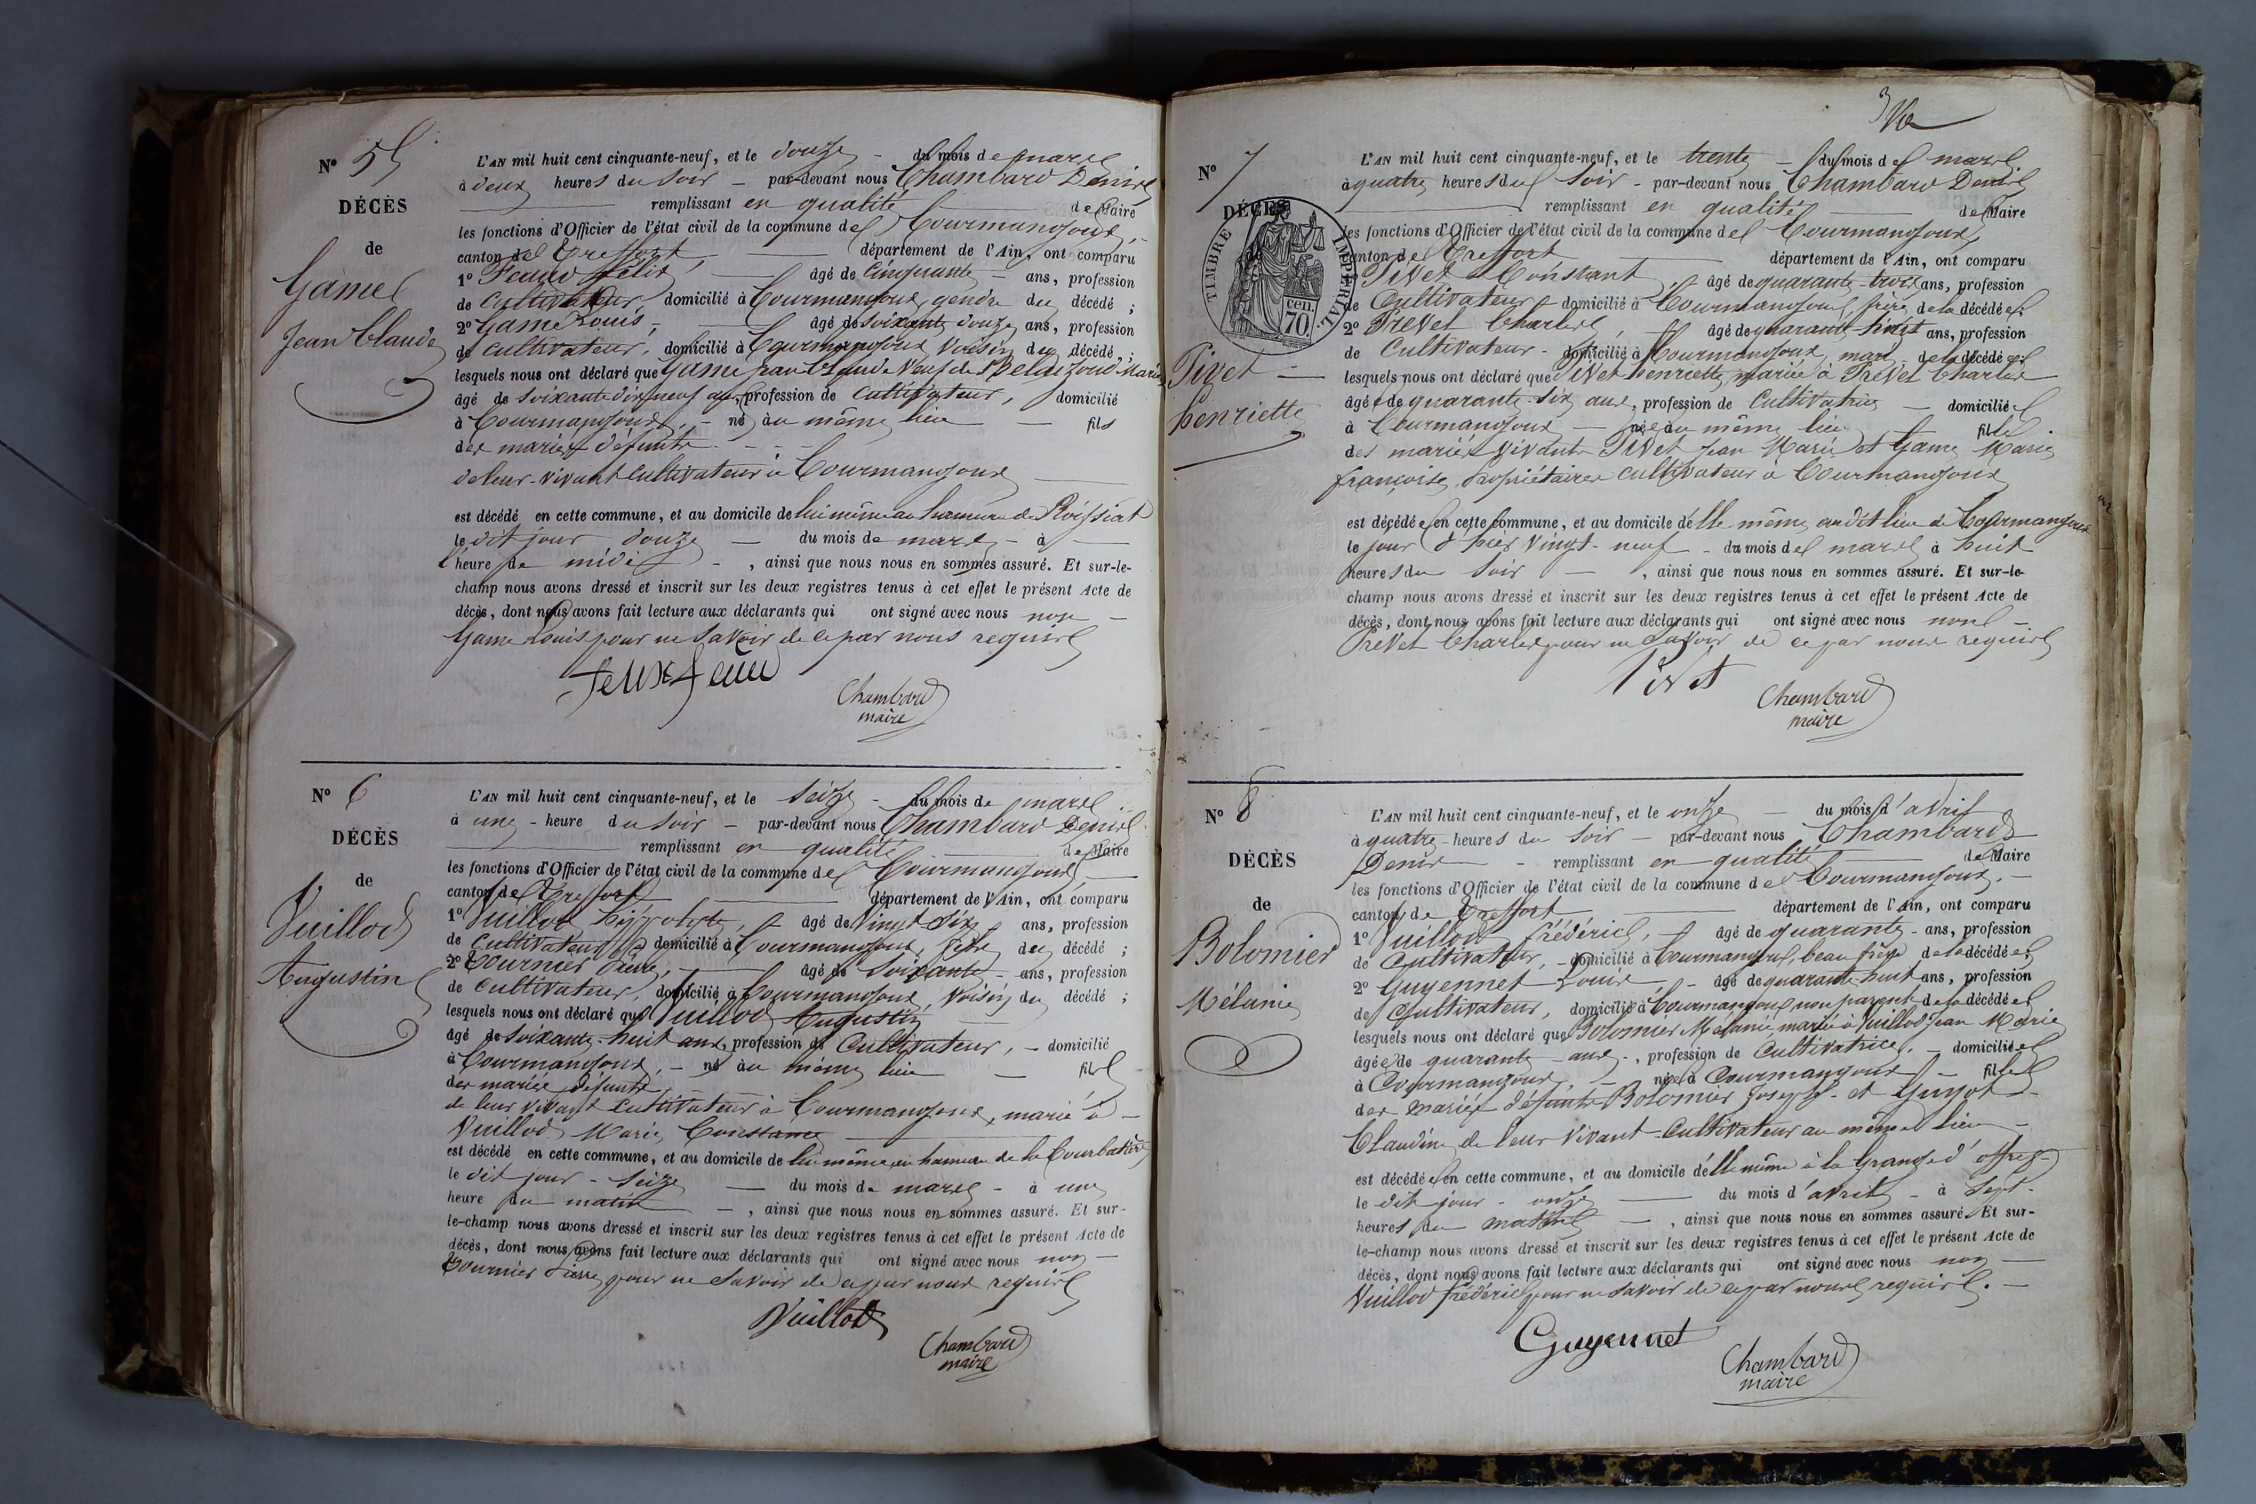 N° 5
DÉCÈS
de
Game
Jean Claude
L'AN mil huit cent cinquante-neuf, et le douze - du mois de mars
à deux heures du soir - par-devant nous Chambard Denis
remplissant en qualité de Maire
les fonctions d'Officier de l'état civil de la commune de Courmangoux,
canton de Treffort département de l'Ain, ont comparu
1° Feaud Félix, âgé de Cinquante ans, profession
de Cultivateur domicilié à Courmangoux, gendre du décédé ;
2° Game Louis, âgé de soixante douze ans, profession
de cultivateur, domicilié à Courmangoux voisin du décédé ;
lesquels nous ont déclaré que Game Jean Claude Veuf de Marie
âgé de soixante dix neuf ans, profession de cultivateur, domicilié
à Courmangoux, - né au même lieu - fils
des mariés défunts
de leur vivant Cultivateurs à Courmangoux
est décédé en cette commune, et au domicile de lui même au hameau de Roissiat
le dit jour douze - du mois de mars - à
l'heure de midi - , ainsi que nous nous en sommes assuré. Et sur-le-
champ nous avons dressé et inscrit sur les deux registres tenus à cet effet le présent Acte de
décès, dont nous avons fait lecture aux déclarants qui ont signé avec nous non -
Game Louis pour ne savoir de ce par nous requis
Felix feau
Chambard
maire
N° 6
DÉCÈS
de
Vuillod
Augustin
L'AN mil huit cent cinquante-neuf, et le seize - du mois de mars
à une - heure du soir - par-devant nous Chambard Denis
remplissant en qualité de Maire
les fonctions d'Officier de l'état civil de la commune de Courmangoux
canton de Treffort département de l'Ain, ont comparu
1° Vuillod hippolyte, âgé de Vingt Six ans, profession
de cultivateur domicilié à Courmangoux, du décédé ;
2° Tournier Pierre, âgé de soixante - ans, profession
de cultivateur, domicilié à Courmangoux, voisin du décédé ;
lesquels nous ont déclaré que Vuillod Augustin
âgé de soixante-huit ans, profession de Cultivateur, - domicilié
à Courmangoux, - né au même lieu - fils
des mariés défunts
de leur vivant cultivateurs à Courmangoux, marié à -
Vuillod Marie Constance
est décédé en cette commune, et au domicile de lui même au hameau de la Courbatière
le dit jour - seize - du mois de mars - à une
heure du matin - , ainsi que nous nous en sommes assuré. Et sur-
le-champ nous avons dressé et inscrit sur les deux registres tenus à cet effet le présent Acte de
décès, dont nous avons fait lecture aux déclarants qui ont signé avec nous non -
Tournier Pierre pour ne savoir de ce par nous requis
Vuillod
Chambard
maire
N° 7
DÉCÈS
TIMBRE IMPÉRIAL
70 cen.
Pivet -
henriette
L'AN mil huit cent cinquante-neuf, et le trente - du mois de mars
à quatre heures du soir - par-devant nous Chambard Denis
remplissant en qualité de Maire
les fonctions d'Officier de l'état civil de la commune de Courmangoux
canton de Treffort département de l'Ain, ont comparu
Pivet Constant, âgé de quarante trois ans, profession
de Cultivateur domicilié à Courmangoux, frère de la décédée ;
2° Prevet Charles, - âgé de quarante-huit ans, profession
de Cultivateur - domicilié à Courmangoux, mari de la décédée ;
lesquels nous ont déclaré que Pivet henriette, mariée à Prevet Charles
âgée de quarante-six ans, profession de Cultivatrice - domiciliée
à Courmangoux - née au même lieu fille
des mariés vivants Pivet Jean Marie et Game Marie
françoise, propriétaires cultivateurs à Courmangoux
est décédée en cette commune, et au domicile d'elle même, au dit lieu de Courmangoux
le jour d'hier vingt-neuf - du mois de mars à huit
heures du soir - , ainsi que nous nous en sommes assuré. Et sur-le-
champ nous avons dressé et inscrit sur les deux registres tenus à cet effet le présent Acte de
décès, dont nous avons fait lecture aux déclarants qui ont signé avec nous non -
Prevet Charles pour ne savoir de ce par nous requis
Pivet
Chambard
maire
N° 8
DÉCÈS
de
Bolomier
Mélanie
L'AN mil huit cent cinquante-neuf, et le onze - du mois d'avril
à quatre - heures du soir - par-devant nous Chambard
Denis - remplissant en qualité de Maire
les fonctions d'Officier de l'état civil de la commune de Courmangoux. -
canton de Treffort département de l'Ain, ont comparu
1° Vuillod frédéric, - âgé de quarante - ans, profession
de Cultivateur, - domicilié à Courmangoux, beau frère de la décédée ;
2° Guyennet Louis - âgé de quarante-huit ans, profession
de Cultivateur, domicilié à Courmangoux non parent de la décédée
lesquels nous ont déclaré que Bolomier Mélanie, mariée à Vuillod Jean Marie
âgée de quarante - ans - , profession de cultivatrice, - domiciliée
à Courmangoux, - née à Courmangoux - fille
des mariés défunts Bolomier Joseph - et Guyot -
Claudine de leur vivant - cultivateurs au même lieu -
est décédée en cette commune, et au domicile d'elle même à la
le dit jour - onze - du mois d'avril - à sept -
heures du matin - , ainsi que nous nous en sommes assuré. Et sur-
le-champ nous avons dressé et inscrit sur les deux registres tenus à cet effet le présent Acte de
décès, dont nous avons fait lecture aux déclarants qui ont signé avec nous non -
Vuillod frédéric pour ne savoir de ce par nous requis. -
Guyennet
Chambard
maire